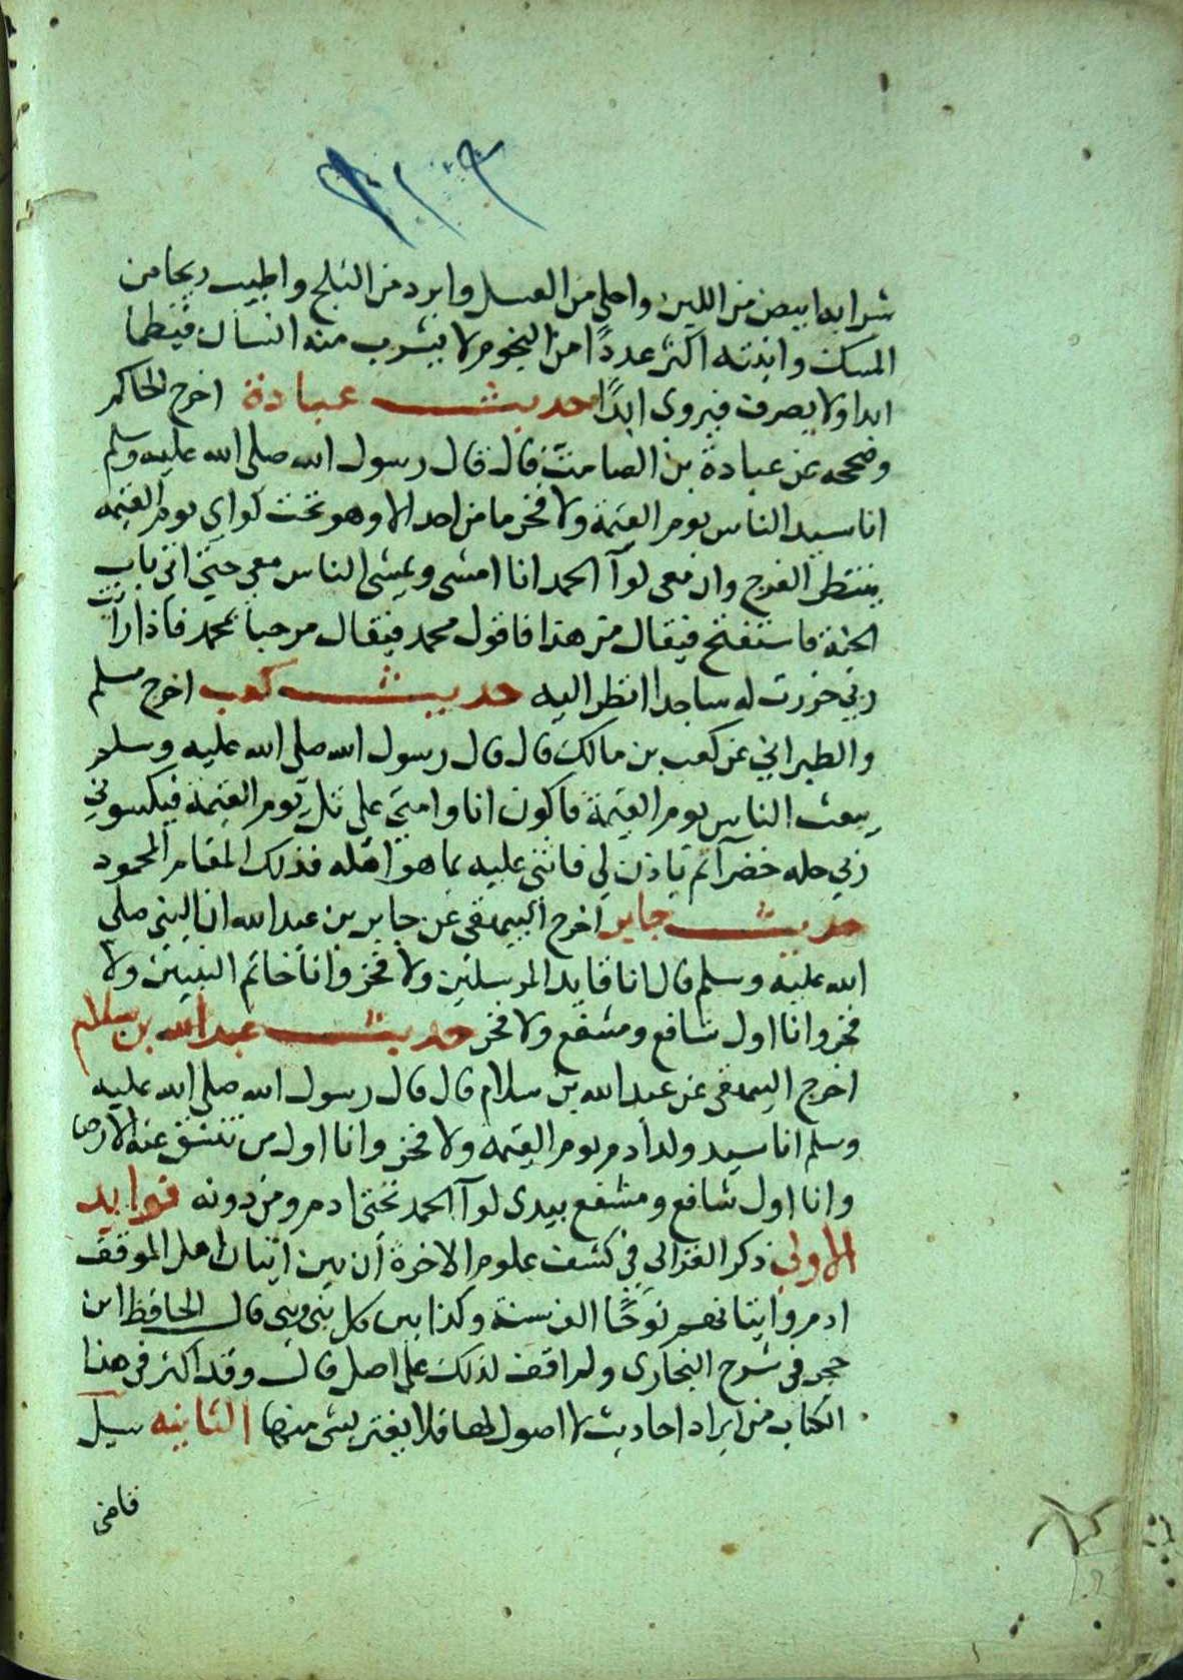 شرابه ابيض من اللبن واحلى من العسل وابرد من الثلج واطيب ريحا من
المسك وانيته اكثر عددًا من النجوم لا يشرب منه انسان فيظما
ابدا ولا يصرف فيروى ابدًا حديث عبادة اخرج الحاكم
وصححه عن عبادة بن الصامت قال قال رسول الله صلى الله عليه وسلم
انا سيد الناس يوم القيمة ولا فخر ما من احد الا وهو تحت لواي يوم القيمه
ينتظر الفرج وان معى لوآ الحمد انا امشى ويمشى الناس معي حتى اتى باب
الجنة فاستفتح فيقال من هذا فاقول محمد فيقال مرحبا بمحمد فاذا رايت
ربي خررت له ساجدا انظر اليه حديث كعب اخرج مسلم
والطبراني عن كعب بن مالك قال قال رسول الله صلى الله عليه وسلم
يبعث الناس يوم القيمة فاكون انا وامتى على تل يوم القيمة فيكسونى
ربي حله خضرآ ثم ياذن لي فاثنى عليه بما هو اهله فذلك المقام المحمود
حديث جابر اخرج البيهقى عن جابر بن عبد الله ان النبى صلى
الله عليه وسلم قال انا قايد المرسلين ولا فخر وانا خاتم النبيين ولا
فخر وانا اول شافع ومشفع ولا فخر حديث عبد الله بن سلام
اخرج البيهقى عن عبد الله بن سلام قال قال رسول الله صلى الله عليه
وسلم انا سيد ولد ادم يوم القيمه ولا فخر وانا اول من تنشق عنه الارض
وانا اول شافع ومشفع بيدى لوآ الحمد تحتى ادم ومن دونه فوايد
الاولى ذكر الغزالي في كشف علوم الاخرة أن بين اتيان اهل الموقف
ادم واتيانهم نوحًا الف سنة وكذا بين كل نبى ونبى قال الحافظ ابن
حجر فى شرح البخارى ولم اقف لذلك على اصل قال وقد اكثر فى هذا
الكتاب من ايراد احاديث لا اصول لها فلا يغتر بشى منها الثانيه سيل
قاضى